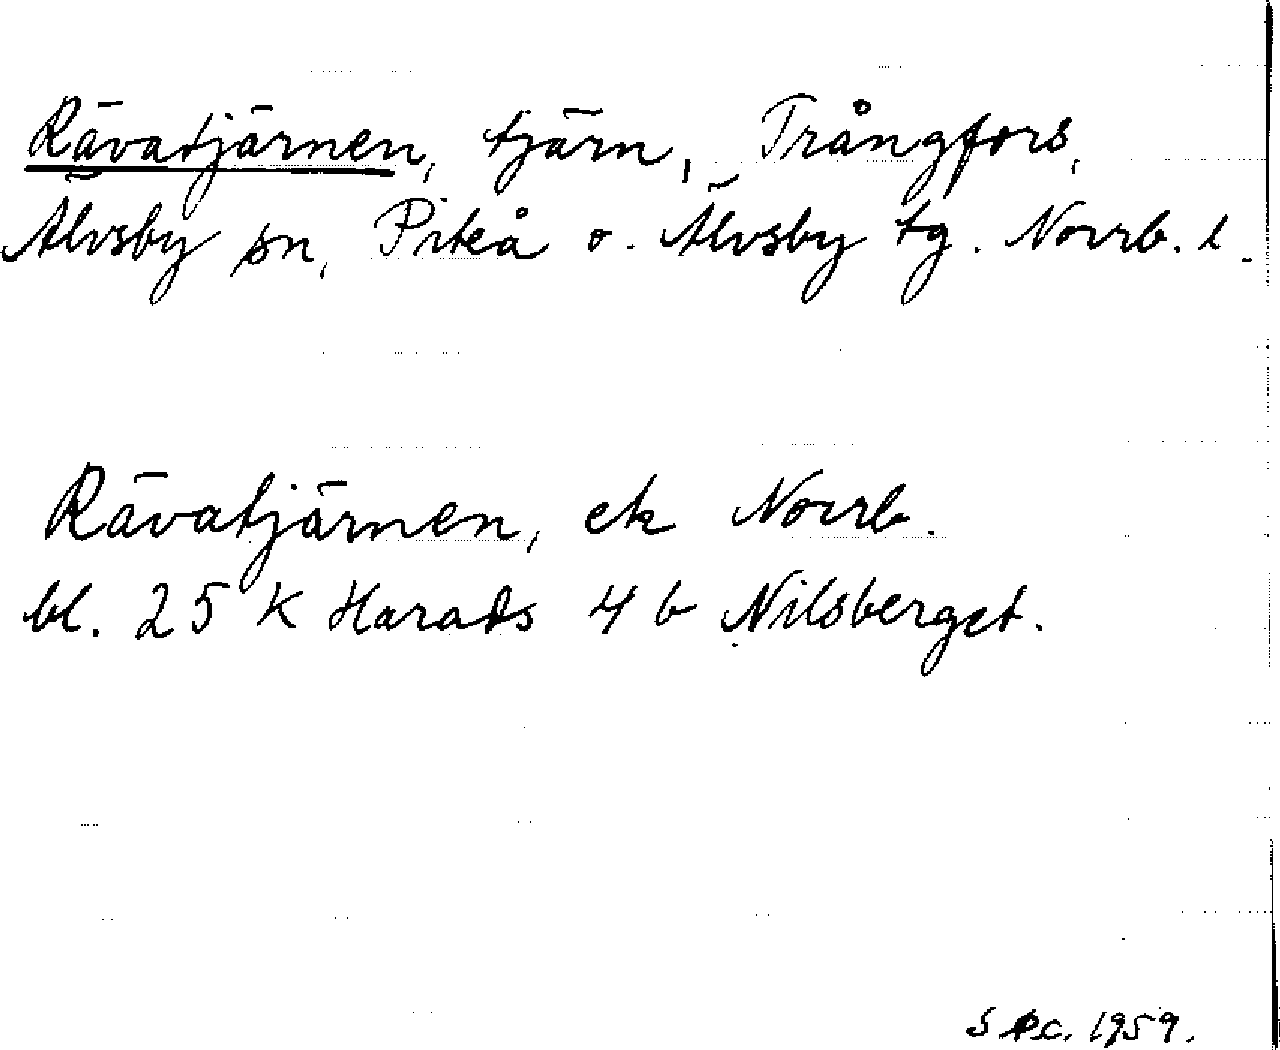 Rävatjärnen, tjärn, Trångfors,
Älvsby sn, Piteå o. Älvsby tg. Norrb. l.
Rävatjärnen, ek Norrb.
bl. 25 K Harads 4 b Nilsberget.
1959.